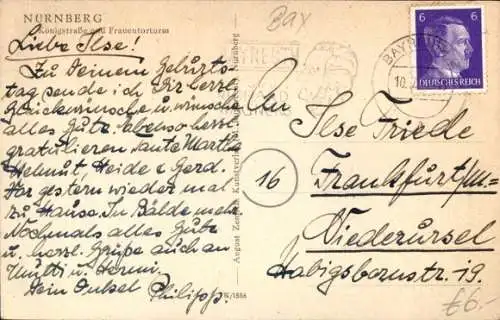 NÜRNBERG
Königstraße und Frauentorturm
Liebe Ilse!
Zu Deinem Geburts-
tag sende ich Dir herzl.
Glückwünsche u. wünsche
alles Gute. ebenso herzl.
gratulieren Tante Martha
Helmut, Heide & Gerd.
War gestern wieder mal
zu Hause. In Bälde mehr
Nochmals alles Gute
u. herzl. Grüße auch an
Mutti u. Hermi.
Dein Onkel Philipp.
August Zerreiss, Kunstverlag, Nürnberg
N/1886
Bay
BAYREUTH
BAYREUTH
10.
6 6
DEUTSCHES REICH
An
Ilse Friede
16
Frankfurt/M=
Niederursel
Habigsbornstr. 19.
£6.-